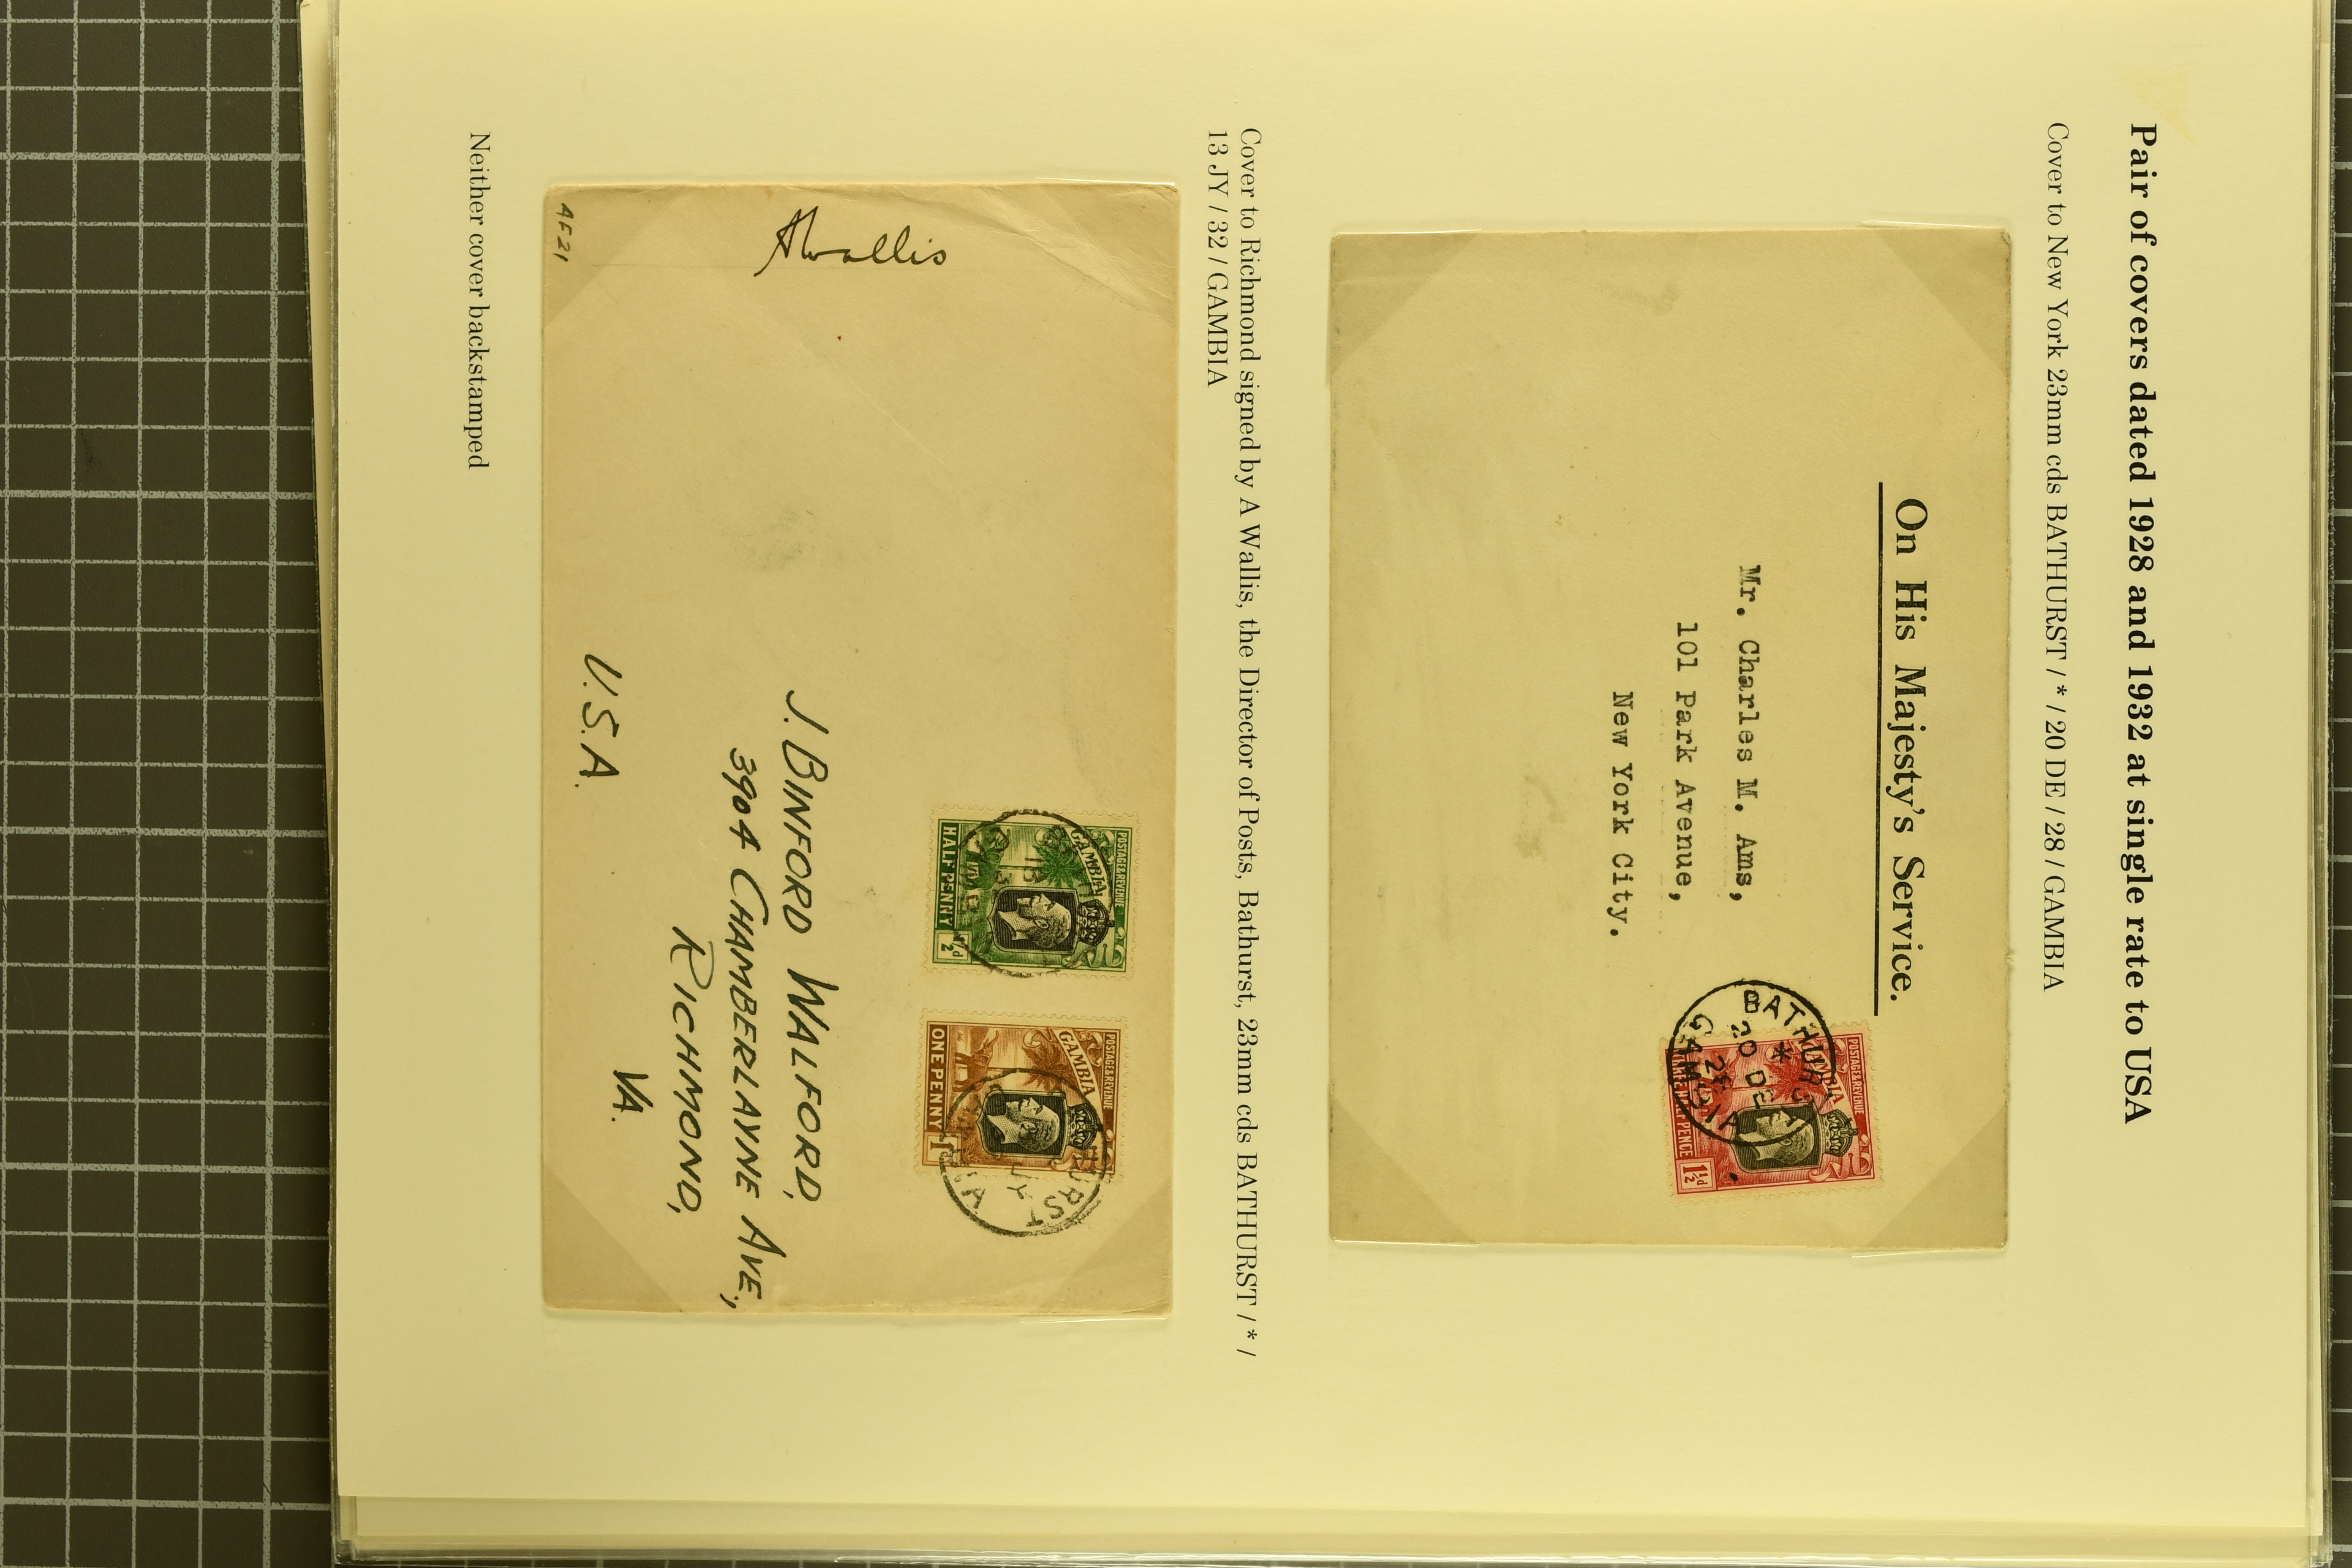 Pair of covers dated 1928 and 1932 at single rate to USA
Cover to New York 23mm cds BATHURST / * / 20 DE / 28 / GAMBIA
On His Majesty's Service.
POSTAGE & REVENUE
GAMBIA
PENCE
1½d
BATHURST
*
20 DE
28
GAMBIA
Mr. Charles M. Ams,
101 Park Avenue,
New York City.
Cover to Richmond signed by A Wallis, the Director of Posts, Bathurst, 23mm cds BATHURST / * /
13 JY / 32 / GAMBIA
AWallis
POSTAGE & REVENUE
GAMBIA
HALF PENNY
½d
POSTAGE & REVENUE
GAMBIA
ONE PENNY
URST
JY
J. BINFORD WALFORD,
3904 CHAMBERLAYNE AVE.,
RICHMOND,
VA.
U.S.A.
AF21
Neither cover backstamped